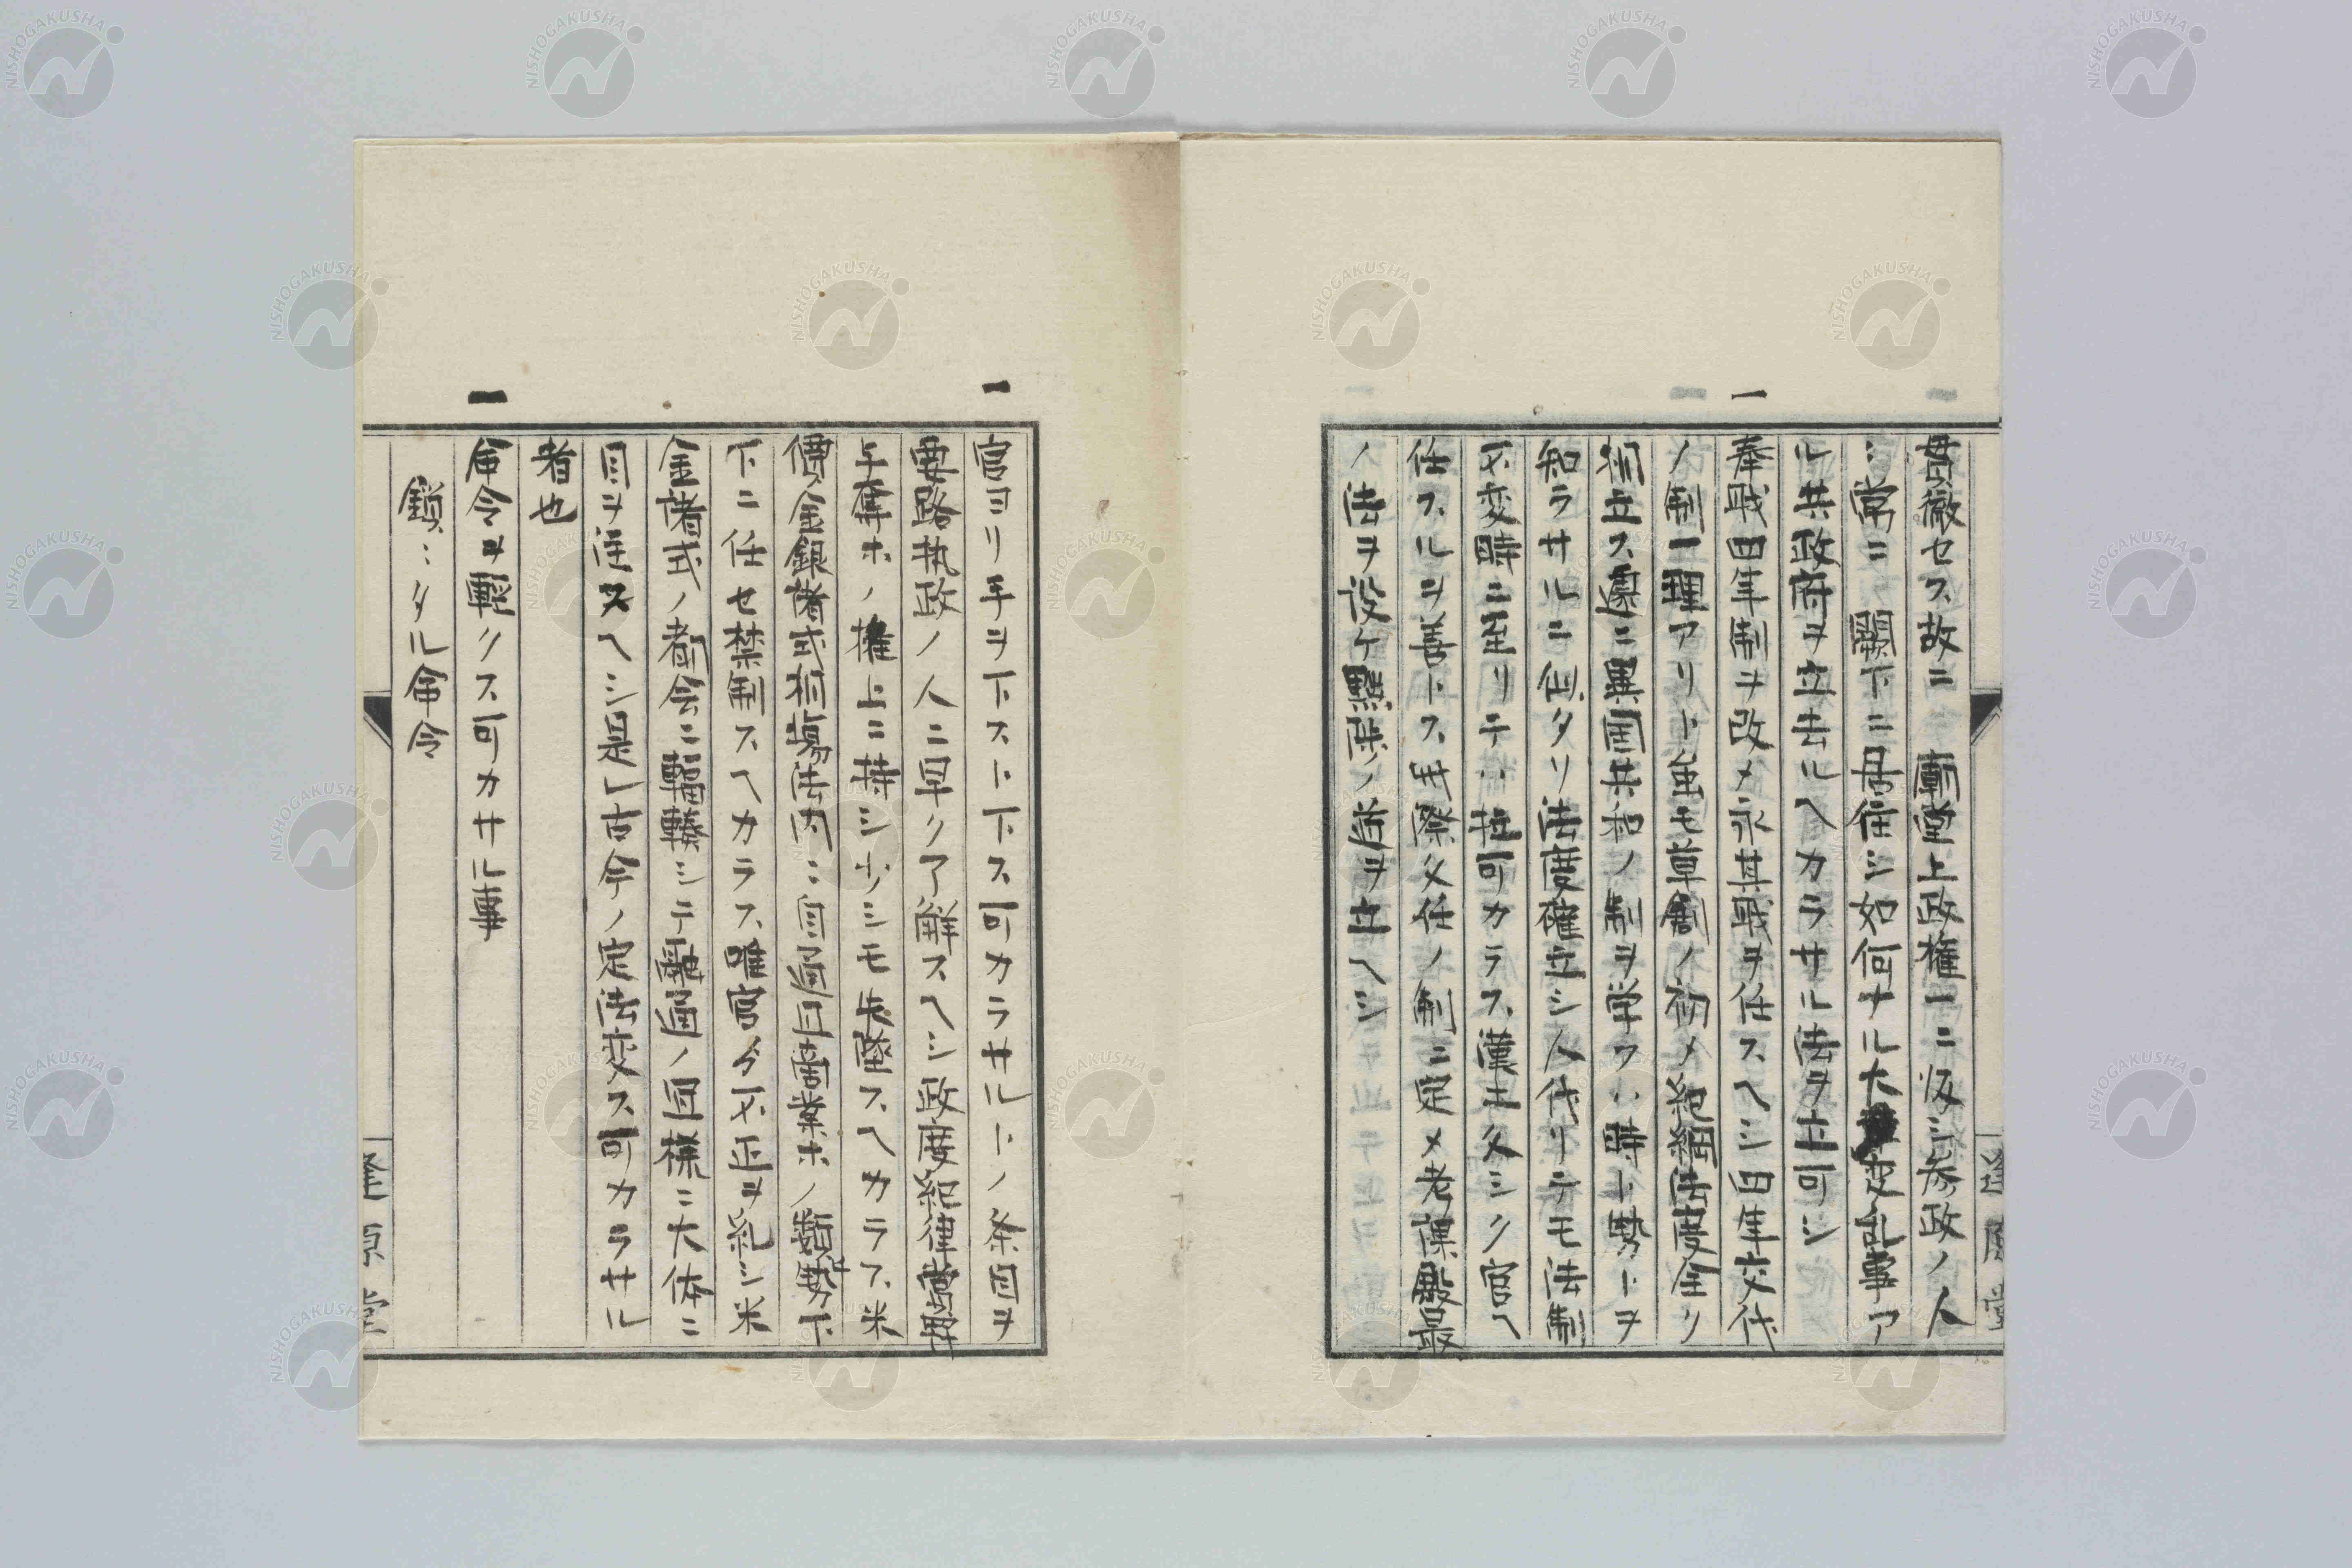 貫徹セス故ニ 廟堂上政権一ニ皈シ参政ノ人
ハ常ニ 闕下ニ居住シ如何ナル大変乱事ア
ル共政府ヲ立去ルヘカラサル法ヲ立可シ
一 奉職四年制ヲ改メ永其職ヲ任スヘシ四年交代
ノ制一理アリト虽モ草創ノ初メ紀綱法度全ク
相立ス遽ニ異国共和ノ制ヲ学フハ時ト勢トヲ
知ラサルニ似タリ法度確立シ人代リテモ法制
不変時ニ至リテハ拒可カラス漢土久シク官ヘ
任スルヲ善トス我際久任ノ制ニ定メ考課殿最
ノ法ヲ設ケ黜陟ノ道ヲ立ヘシ
一 官ヨリ手ヲ下スト下ス可カラサルトノ条目ヲ
要路執政ノ人ニ早ク了解スヘシ政度紀律賞罰
与奪ホノ権上ニ持シ少シモ失墜スヘカラス米
價金銀諸式相場法内ハ自過自商業ホノ類勢下
下ニ任セ禁制スヘカラス唯官令不正ヲ糺シ米
金諸式ノ都会ニ輻輳シテ融通ノ目様ニ大体ニ
目ヲ注スヘシ是レ古今ノ定法変ス可カラサル
者也
一 命令ヲ輕クス可カサル事
鎖ニタル命令